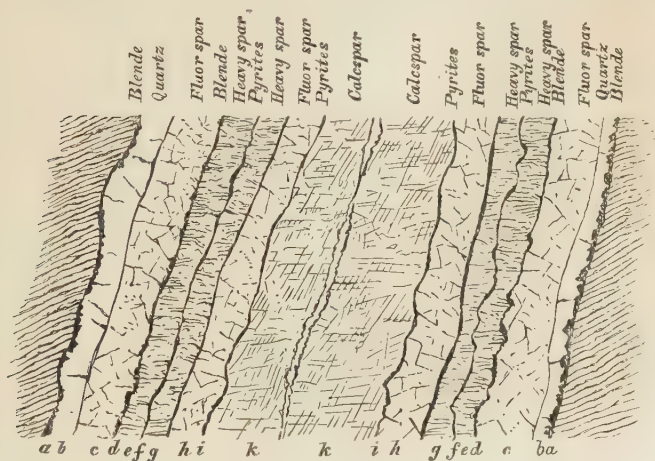 Blende
Quartz
Fluor spar
Blende
Heavy spar
Pyrites
Heavy spar
Fluor spar
Pyrites
Calcspar
Calcspar
Pyrites
Fluor spar
Heavy spar
Pyrites
Heavy spar
Blende
Fluor spar
Quartz
Blende
a b c d e f g h i k k i h g f e d c b a